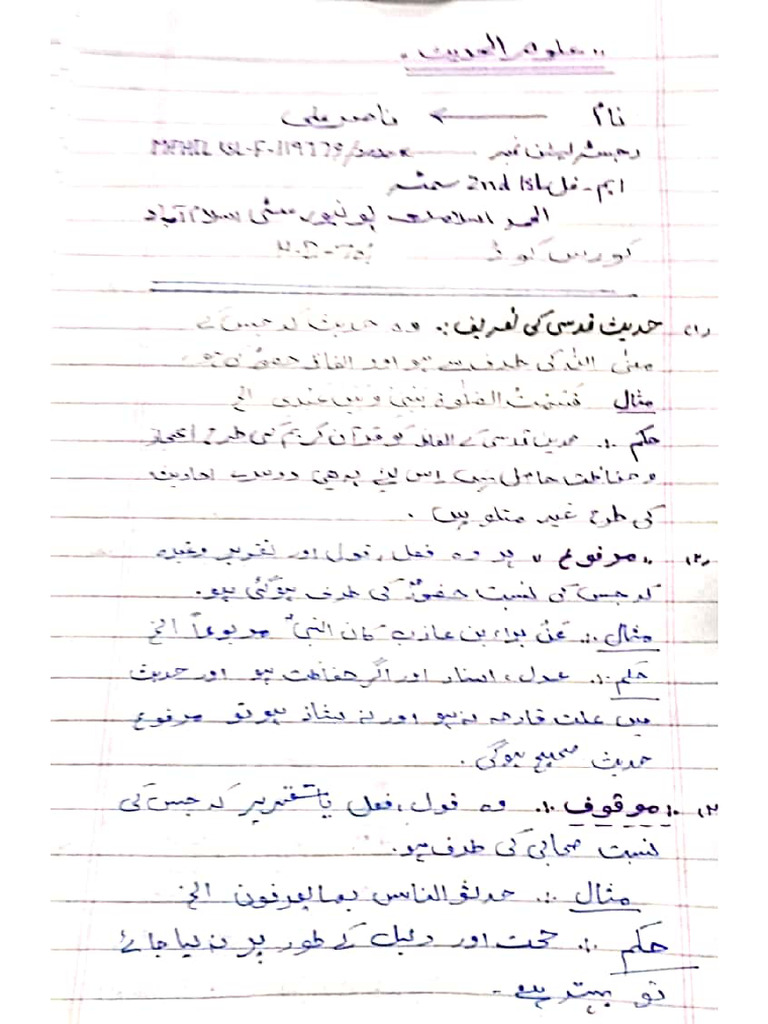 علوم الحدیث
نام ← ناصر علی
رجسٹریشن نمبر
ایم۔فل 1st 2nd سمسٹر
الحمد اسلامک یونیورسٹی اسلام آباد
کورس کوڈ
(۱) حدیث قدسی کی تعریف :۔ وہ حدیث کہ جس کے
معنی اللہ کی طرف سے ہو اور الفاظ حضورؐ
مثال قسمت الصلوۃ بینی وبین عبدی الخ
حکم :۔ حدیث قدسی کے الفاظ کو قرآن کریم کی طرح اعجاز
و حفاظت حاصل نہیں اس لیئے یہ بھی دوسرے احادیث
کی طرح غیر متلو ہیں ۔
(۲) مرفوع :۔ ہر وہ فعل، قول اور تقریر وغیرہ
کہ جس کی نسبت حضورؐ کی طرف ہوگئی ہو۔
مثال :۔ عن براء بن عازب کان النبیؐ مربوعاً الخ
حکم :۔ عدل، اسناد اور اگر حفاظت ہو اور حدیث
میں علت قادحہ نہ ہو اور نہ شاذ ہو تو مرفوع
حدیث صحیح ہوگی ۔
۳) موقوف :۔ وہ قول، فعل یا تقریر کہ جس کی
نسبت صحابی کی طرف ہو۔
مثال :۔ حدثو الناس بما یعرفون الخ
حکم :۔ حجت اور دلیل کے طور پر نہ لیا جائے
تو بہتر ہے ۔